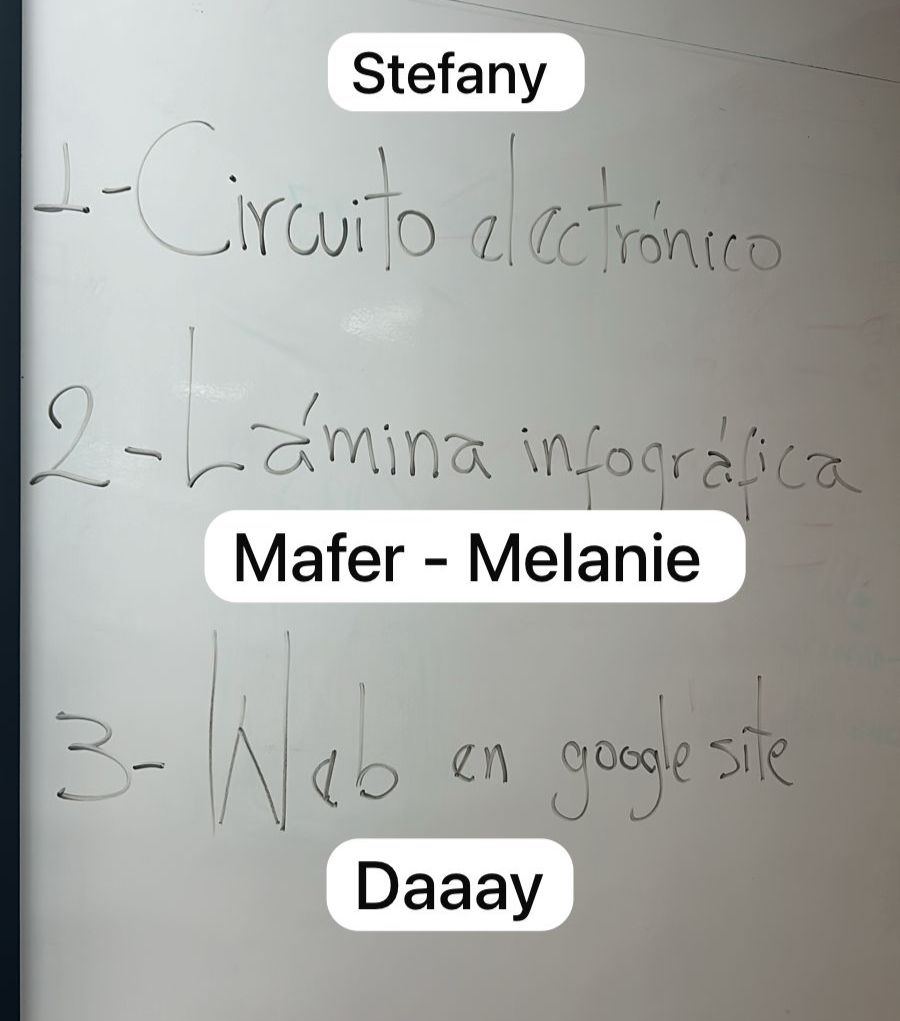 Stefany
1-Circuito electrónico
2-Lámina infográfica
Mafer - Melanie
3- Web en google site
Daaay